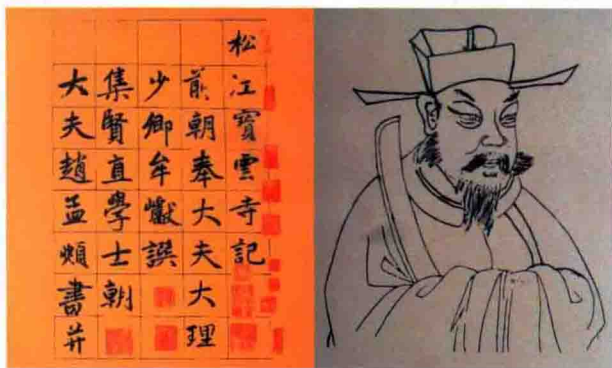 松江寳雲寺記
前朝奉大夫大理
少卿牟巘譔
集賢直學士朝
大夫趙孟頫書并